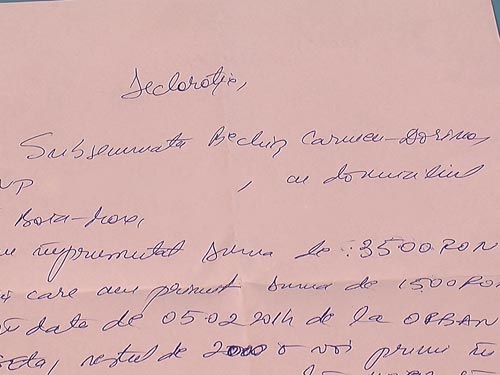 Declarație,
Subsemnata Bechir Carmen-Dorina,
NP , cu domiciliul
Bora-
împrumutat suma de : 3500 RON
care am primit suma de 1500 RON
data de 05.02.2014 de la ORBAN
restul de 2000 o voi primi în